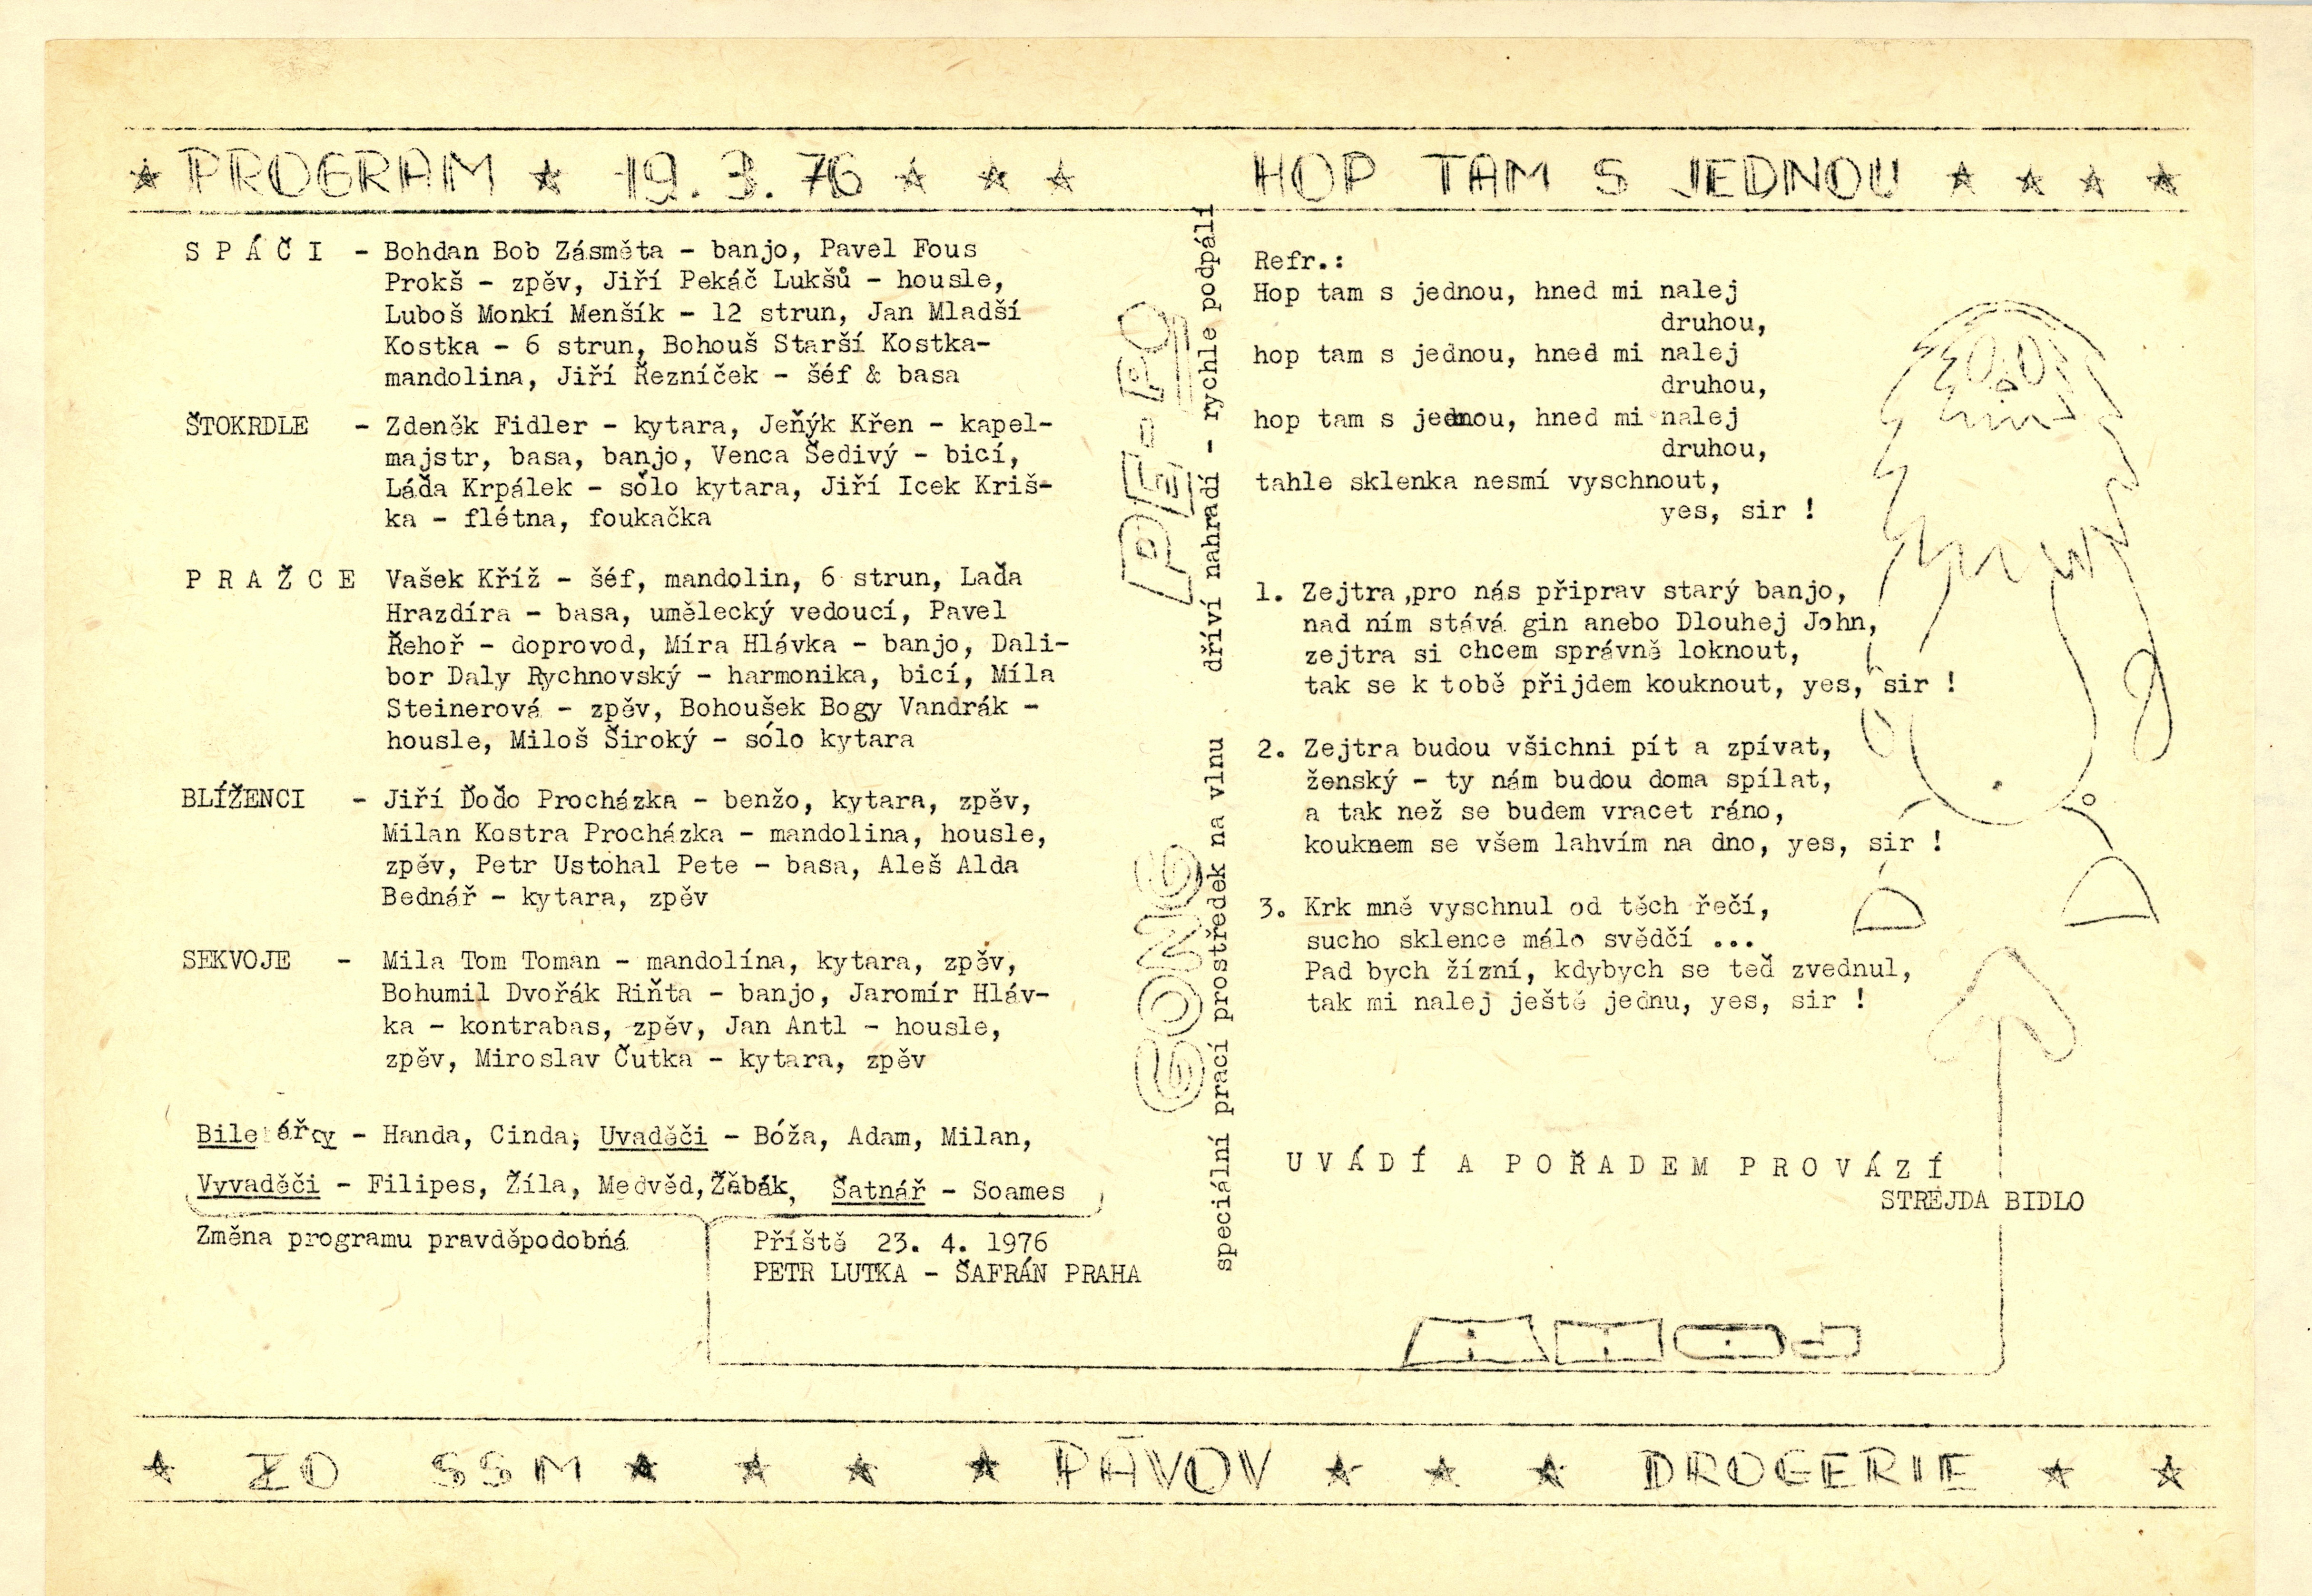 ★ PROGRAM ★ 19.3.76 ★ ★ ★
S P Á Č I - Bohdan Bob Zásměta - banjo, Pavel Fous
Prokš - zpěv, Jiří Pekáč Lukšů - housle,
Luboš Monkí Menšík - 12 strun, Jan Mladší
Kostka - 6 strun, Bohouš Starší Kostka-
mandolina, Jiří Řezníček - šéf & basa
ŠTOKRDLE - Zdeněk Fidler - kytara, Jeňýk Křen - kapel-
majstr, basa, banjo, Venca Šedivý - bicí,
Láďa Krpálek - sólo kytara, Jiří Icek Kriš-
ka - flétna, foukačka
P R A Ž C E Vašek Kříž - šéf, mandolin, 6 strun, Laďa
Hrazdíra - basa, umělecký vedoucí, Pavel
Řehoř - doprovod, Míra Hlávka - banjo, Dali-
bor Daly Rychnovský - harmonika, bicí, Míla
Steinerová - zpěv, Bohoušek Bogy Vandrák -
housle, Miloš Široký - sólo kytara
BLÍŽENCI - Jiří Ďoďo Procházka - benžo, kytara, zpěv,
Milan Kostra Procházka - mandolina, housle,
zpěv, Petr Ustohal Pete - basa, Aleš Alda
Bednář - kytara, zpěv
SEKVOJE - Mila Tom Toman - mandolína, kytara, zpěv,
Bohumil Dvořák Riňta - banjo, Jaromír Hláv-
ka - kontrabas, zpěv, Jan Antl - housle,
zpěv, Miroslav Čutka - kytara, zpěv
Biletářky - Handa, Cinda; Uvaděči - Bóža, Adam, Milan,
Vyvaděči - Filipes, Žíla, Medvěd, Žábák, Šatnář - Soames
Změna programu pravděpodobná
Příště 23. 4. 1976
PETR LUTKA - ŠAFRÁN PRAHA
PE-PO
dříví nahradí - rychle podpálí
GONG
speciální prací prostředek na vlnu
HOP TAM S JEDNOU ★ ★ ★ ★
Refr.:
Hop tam s jednou, hned mi nalej
druhou,
hop tam s jednou, hned mi nalej
druhou,
hop tam s jednou, hned mi nalej
druhou,
tahle sklenka nesmí vyschnout,
yes, sir !
1. Zejtra ,pro nás připrav starý banjo,
nad ním stává gin anebo Dlouhej John,
zejtra si chcem správně loknout,
tak se k tobě přijdem kouknout, yes, sir !
2. Zejtra budou všichni pít a zpívat,
ženský - ty nám budou doma spílat,
a tak než se budem vracet ráno,
kouknem se všem lahvím na dno, yes, sir !
3. Krk mně vyschnul od těch řečí,
sucho sklence málo svědčí ...
Pad bych žízní, kdybych se teď zvednul,
tak mi nalej ještě jednu, yes, sir !
U V Á D Í A P O Ř A D E M P R O V Á Z Í
STREJDA BIDLO
★ ZO SSM ★ ★ ★ ★ PÁVOV ★ ★ ★ DROGERIE ★ ★